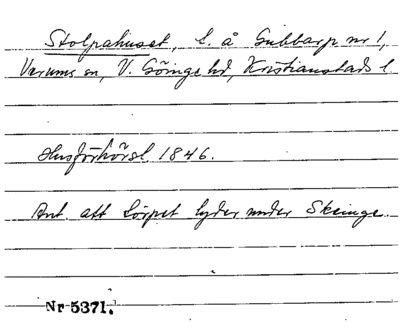 Stolpahuset, l. å Gubbarp nr 1,
Verums sn, V. Göinge hd, Kristianstads l
Husförhörsl. 1846.
Ant. att torpet lyder under Skeinge.
Nr 5371.